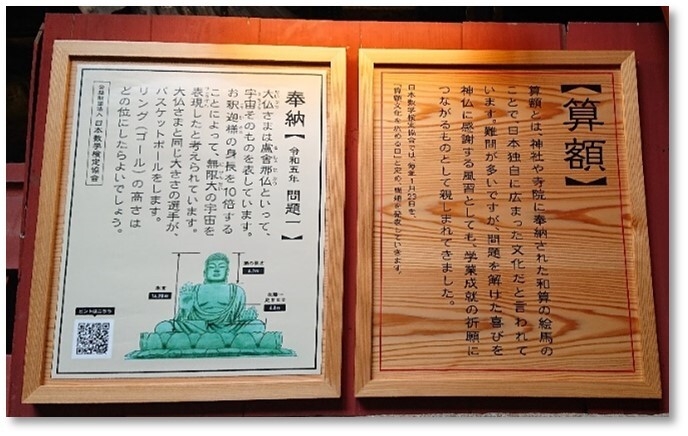 【算額】
算額とは、神社や寺院に奉納された和算の絵馬の
ことで日本独自に広まった文化だと言われて
います。難問が多いですが、問題を解けた喜びを
神仏に感謝する風習としても、学業成就の祈願に
つながるものとして親しまれてきました。
日本数学検定協会では、毎年1月23日を、
「算額文化を広める日」と定め、
奉納【令和五年 問題一】
大仏さまは盧舎那仏といって、
宇宙そのものを表しています。
お釈迦様の身長を10倍する
ことによって、無限大の宇宙を
表現したと考えられています。
大仏さまと同じ大きさの選手が、
バスケットボールをします。
リング(ゴール)の高さは
どの位にしたらよいでしょう。
公益財団法人 日本数学検定協会
ヒントはこちら